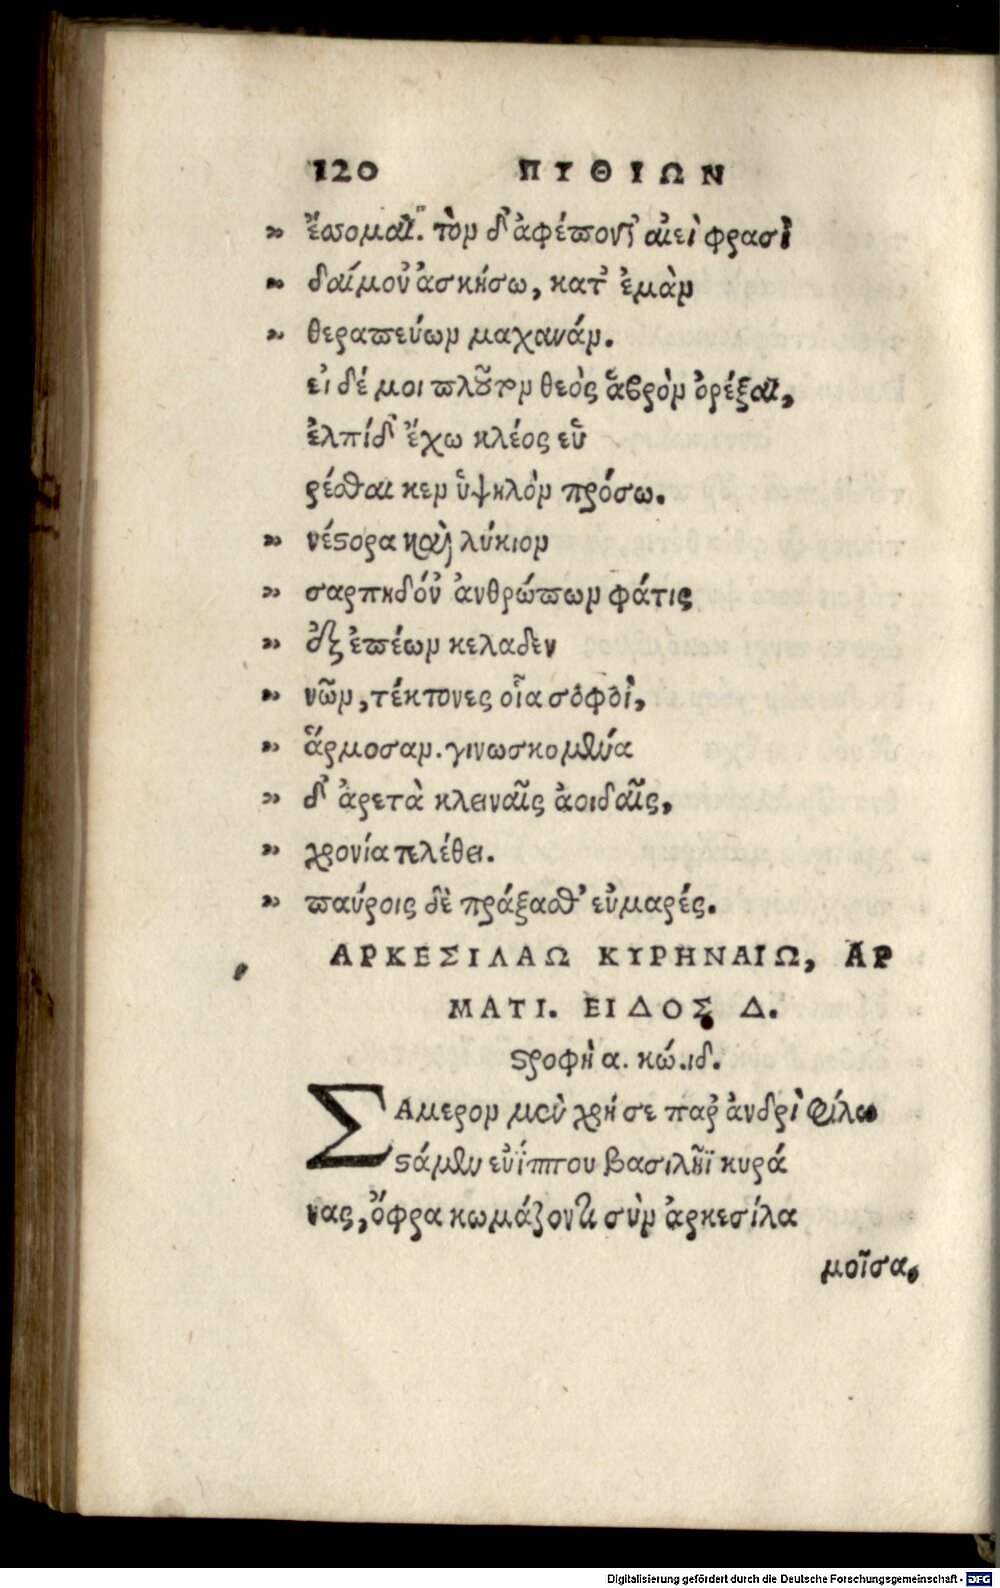 120 ΠΥΘΙΩΝ
» ἔσομαι. τὸν δ' ἀφέποντ' αἰεὶ φρασὶ
» δαίμον' ἀσκήσω, κατ' ἐμὰν
» θεραπεύων μαχανάν.
εἰ δέ μοι πλοῦτον θεὸς ἁβρὸν ὀρέξαι,
ἐλπίδ' ἔχω κλέος εὑ
ρέσθαι κεν ὑψηλὸν πρόσω.
» νέστορα καὶ λύκιον
» σαρπηδόν' ἀνθρώπων φάτις
» ἐξ ἐπέων κελαδεν
» νῶν, τέκτονες οἷα σοφοὶ,
» ἅρμοσαν. γινωσκομένα
» δ' ἀρετὰ κλειναῖς ἀοιδαῖς,
» χρονία πελέθει.
» παύροις δὲ πράξασθ' εὐμαρές.
ΑΡΚΕΣΙΛΑΩ ΚΥΡΗΝΑΙΩ, ΑΡ
ΜΑΤΙ. ΕΙΔΟΣ Δ.
στροφὴ α. κώ. ιδ.
ΣΑμερον μὲν χρή σε παρ' ἀνδρὶ φίλω
στάμεν εὐΐππου βασιλῆϊ κυρά
νας, ὄφρα κωμάζοντι σὺν ἀρκεσίλα
μοῖσα,
Digitalisierung gefördert durch die Deutsche Forschungsgemeinschaft - DFG